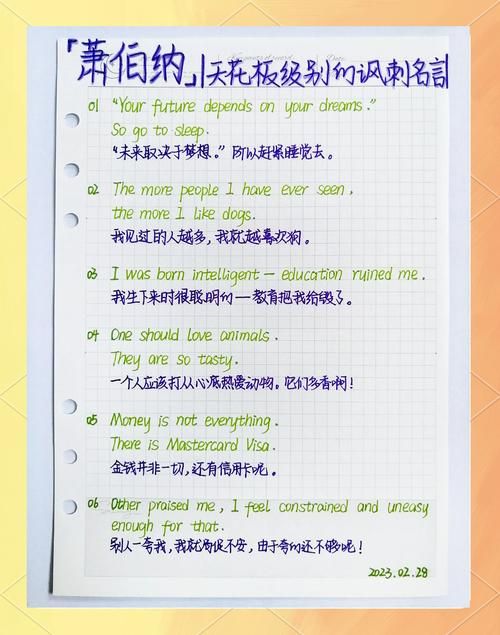 「萧伯纳」|天花板级别的讽刺名言
01 "Your future depends on your dreams."
So go to sleep.
"未来取决于梦想。" 所以赶紧睡觉去。
02 The more people I have ever seen,
the more I like dogs.
我见过的人越多,我就越喜欢狗。
03 I was born intelligent — education ruined me.
我生下来时很聪明的——教育把我给毁了。
04 One should love animals.
They are so tasty.
一个人应该打从心底热爱动物。它们多香啊!
05 Money is not everything.
There is Mastercard Visa.
金钱并非一切,还有信用卡呢。
06 Other praised me, I feel constrained and uneasy
enough for that.
别人一夸我,我就局促不安,由于夸的还不够呢!
2023.02.28